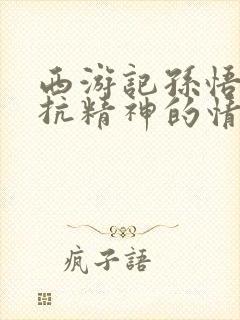 西游記孫悟
抗精神的情
疯子語